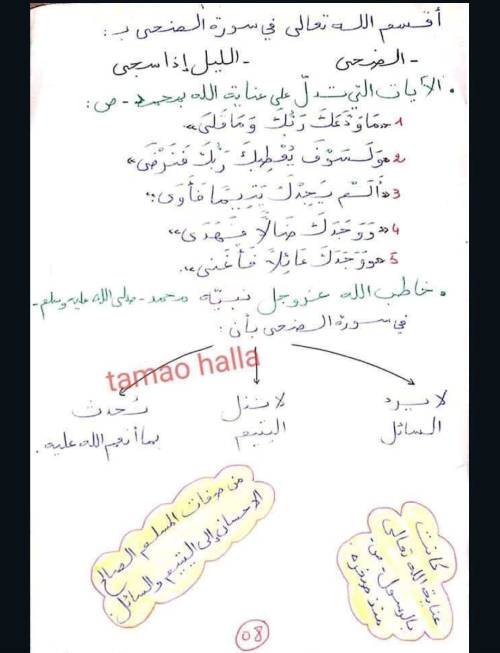 أقسم الله تعالى في سورة الضحى بـ:
- الضحى - الليل إذا سجى
• الآيات التي تدلّ على عناية الله بمحمد - ص:
1 «مَا وَدَّعَكَ رَبُّكَ وَمَا قَلَى».
2 «وَلَسَوْفَ يُعْطِيكَ رَبُّكَ فَتَرْضَى»
3 «أَلَمْ يَجِدْكَ يَتِيمًا فَآوَى».
4 «وَوَجَدَكَ ضَالًّا فَهَدَى»
5 «وَوَجَدَكَ عَائِلًا فَأَغْنَى».
• خاطب الله عز وجل نبيّه محمد - صلى الله عليه وسلم -
في سورة الضحى بأن:
tamao halla
لا يرد لا يذل يُحدث
السائل اليتيم بما أنعم الله عليه.
من صفات المسلم الصالح
الإحسان إلى اليتيم والسائل.
كانت
عناية الله تعالى
بالرسول - ص -
منذ صغره
08